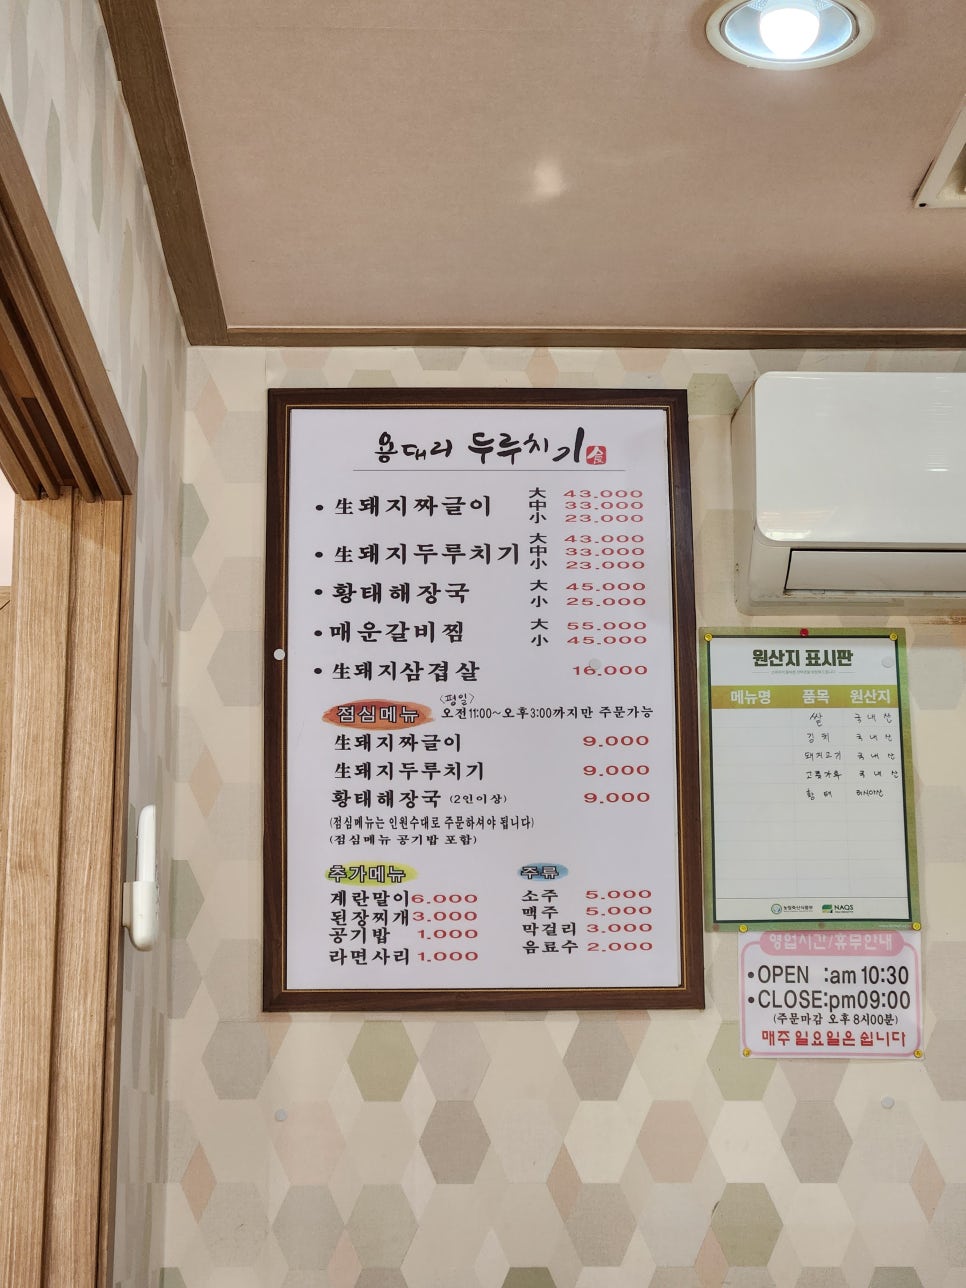 용대리 두루치기 食
• 生돼지짜글이 大 43.000
中 33.000
小 23.000
• 生돼지두루치기 大 43.000
中 33.000
小 23.000
• 황태해장국 大 45.000
小 25.000
• 매운갈비찜 大 55.000
小 45.000
• 生돼지삼겹살 16.000
점심메뉴 <평일> 오전11:00~오후3:00까지만 주문가능
生돼지짜글이 9.000
生돼지두루치기 9.000
황태해장국 (2인이상) 9.000
(점심메뉴는 인원수대로 주문하셔야 됩니다)
(점심메뉴 공기밥 포함)
추가메뉴
계란말이 6.000
된장찌개 3.000
공기밥 1.000
라면사리 1.000
주류
소주 5.000
맥주 5.000
막걸리 3.000
음료수 2.000
원산지 표시판
메뉴명 품목 원산지
쌀 국내산
김치 국내산
돼지고기 국내산
고춧가루 국내산
황태 러시아산
농림축산식품부 NAQS
영업시간/휴무안내
•OPEN :am 10:30
•CLOSE:pm09:00
(주문마감 오후 8시00분)
매주 일요일은 쉽니다